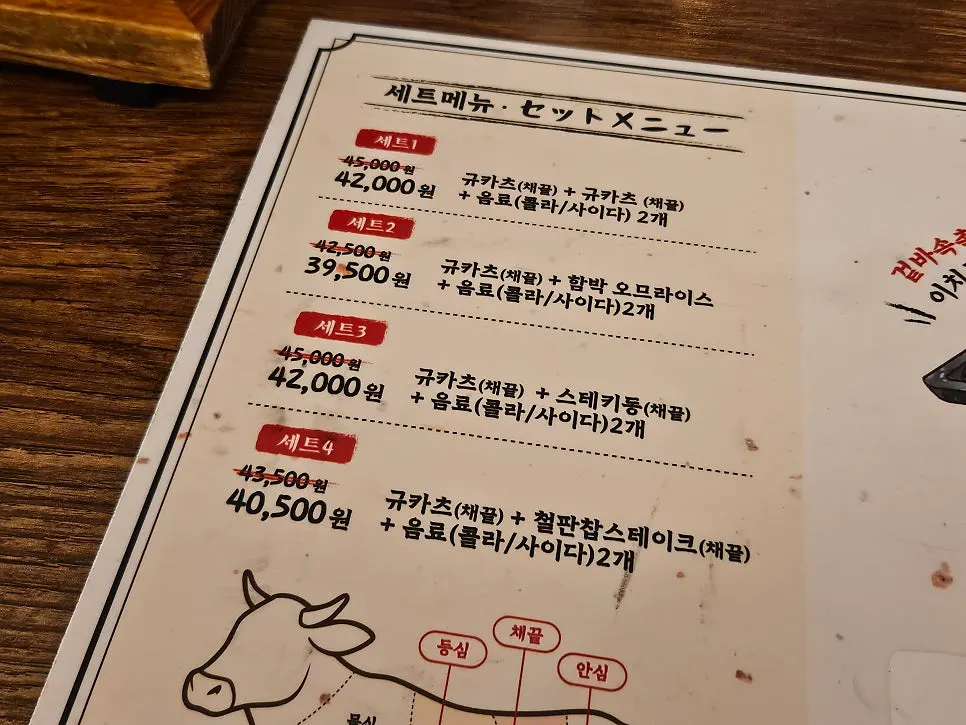 세트메뉴 · セットメニュー
세트1
45,000 원
42,000 원
규카츠(채끝) + 규카츠 (채끝)
+ 음료(콜라/사이다) 2개
세트2
42,500 원
39,500 원
규카츠(채끝) + 함박 오므라이스
+ 음료(콜라/사이다)2개
세트3
45,000 원
42,000 원
규카츠(채끝) + 스테키동(채끝)
+ 음료(콜라/사이다)2개
세트4
43,500 원
40,500 원
규카츠(채끝) + 철판찹스테이크(채끝)
+ 음료(콜라/사이다)2개
겉바속촉
이치
등심
채끝
안심